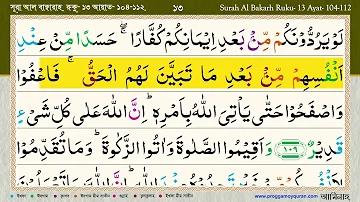 সূরা আল বাক্বারাহ, রুকু- ১৩ আয়াত- ১০৪-১১২
১৩
Surah Al Bakarh Ruku- 13 Ayat- 104-112
لَوْ يَرُدُّوْنَكُمْ مِّنْۢ بَعْدِ اِيْمَانِكُمْ كُفَّارًا ۚۖ حَسَدًا مِّنْ عِنْدِ
اَنْفُسِهِمْ مِّنْۢ بَعْدِ مَا تَبَيَّنَ لَهُمُ الْحَقُّ ۚ فَاعْفُوْا
وَاصْفَحُوْا حَتّٰى يَاْتِىَ اللّٰهُ بِاَمْرِهٖ ؕ اِنَّ اللّٰهَ عَلٰى كُلِّ شَىْءٍ
قَدِيْرٌ ۝١٠٩ وَاَقِيْمُوا الصَّلٰوةَ وَاٰتُوا الزَّكٰوةَ ؕ وَمَا تُقَدِّمُوْا
www.proggamoyquran.com